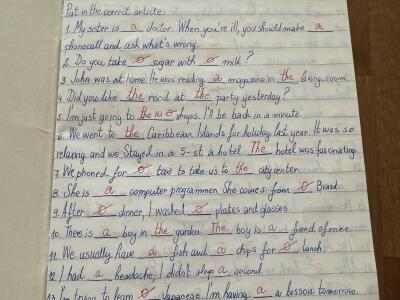 Put in the correct article:
1. My sister is a doctor. When you're ill, you should make a
phonecall and ask what's wrong.
2. Do you take ø sugar with ø milk?
3 John was at home. He was reading a magazine in the living room.
4 Did you like the food at the party yesterday?
5. I'm just going to the shops. I'll be back in a minute.
6. We went to the Caribbean Islands for holiday last year. It was so
relaxing and we stayed in a 5-st a hotel. The hotel was fascinating
7. We phoned for ø taxi to take us to the city center.
8. She is a computer programmer. She comes from ø Brazil.
9. After ø dinner, I washed ø plates and glasses.
10. There is a boy in the garden. The boy is a friend of mine.
11. We usually have a fish and a chips for ø lunch.
12 I had a headache, I didn't sleep a second.
13. I'm trying to learn ø Japanese. I'm having a a lesson tomorrow.